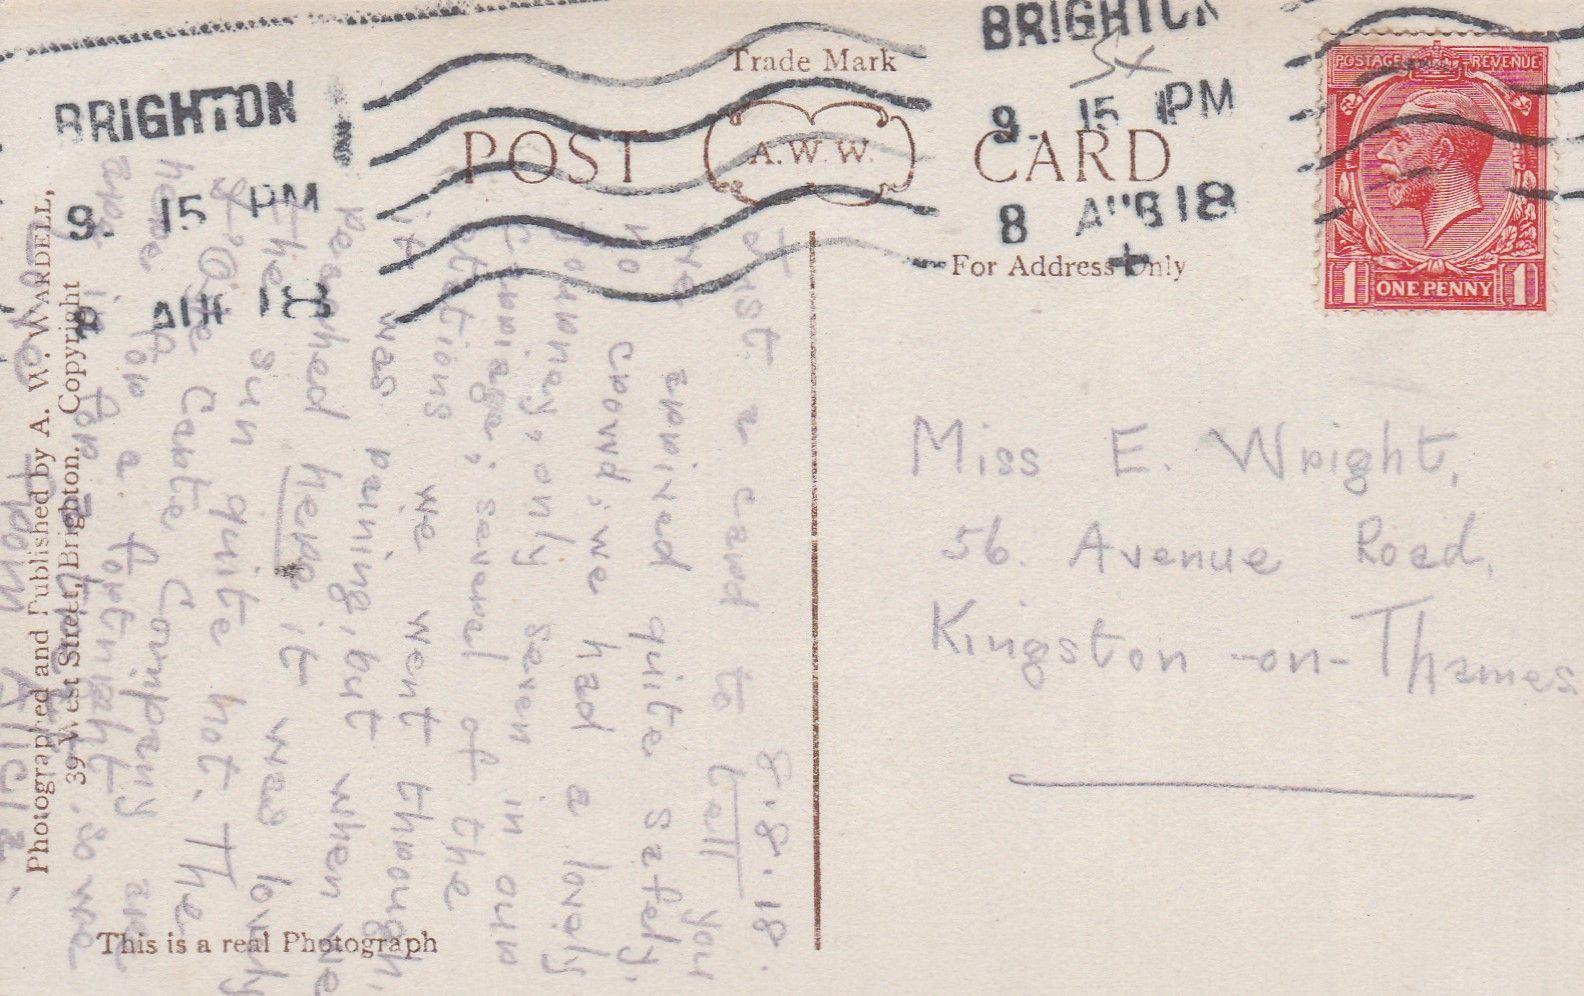 BRIGHTON
9. 15 PM
8 AUG 18
BRIGHTON
9. 15 PM
8 AUG 18
Trade Mark
POST A.W.W. CARD
For Address Only
POSTAGE REVENUE
1 ONE PENNY 1
Miss E. Wright,
56. Avenue Road,
Kingston-on-Thames
8.8.18.
Just a card to tell you
we arrived quite safely.
no crowd; we had a lovely
journey, only seven in our
carriage; several of the
stations we went through,
it was raining, but when we
reached here it was lovely
the sun quite hot. The
D'Oyle Carte Company are
here for a fortnight. So we
are in for
Love from Alicia.
Photographed and Published by A. W. WARDELL,
39 West Street, Brighton. Copyright
This is a real Photograph